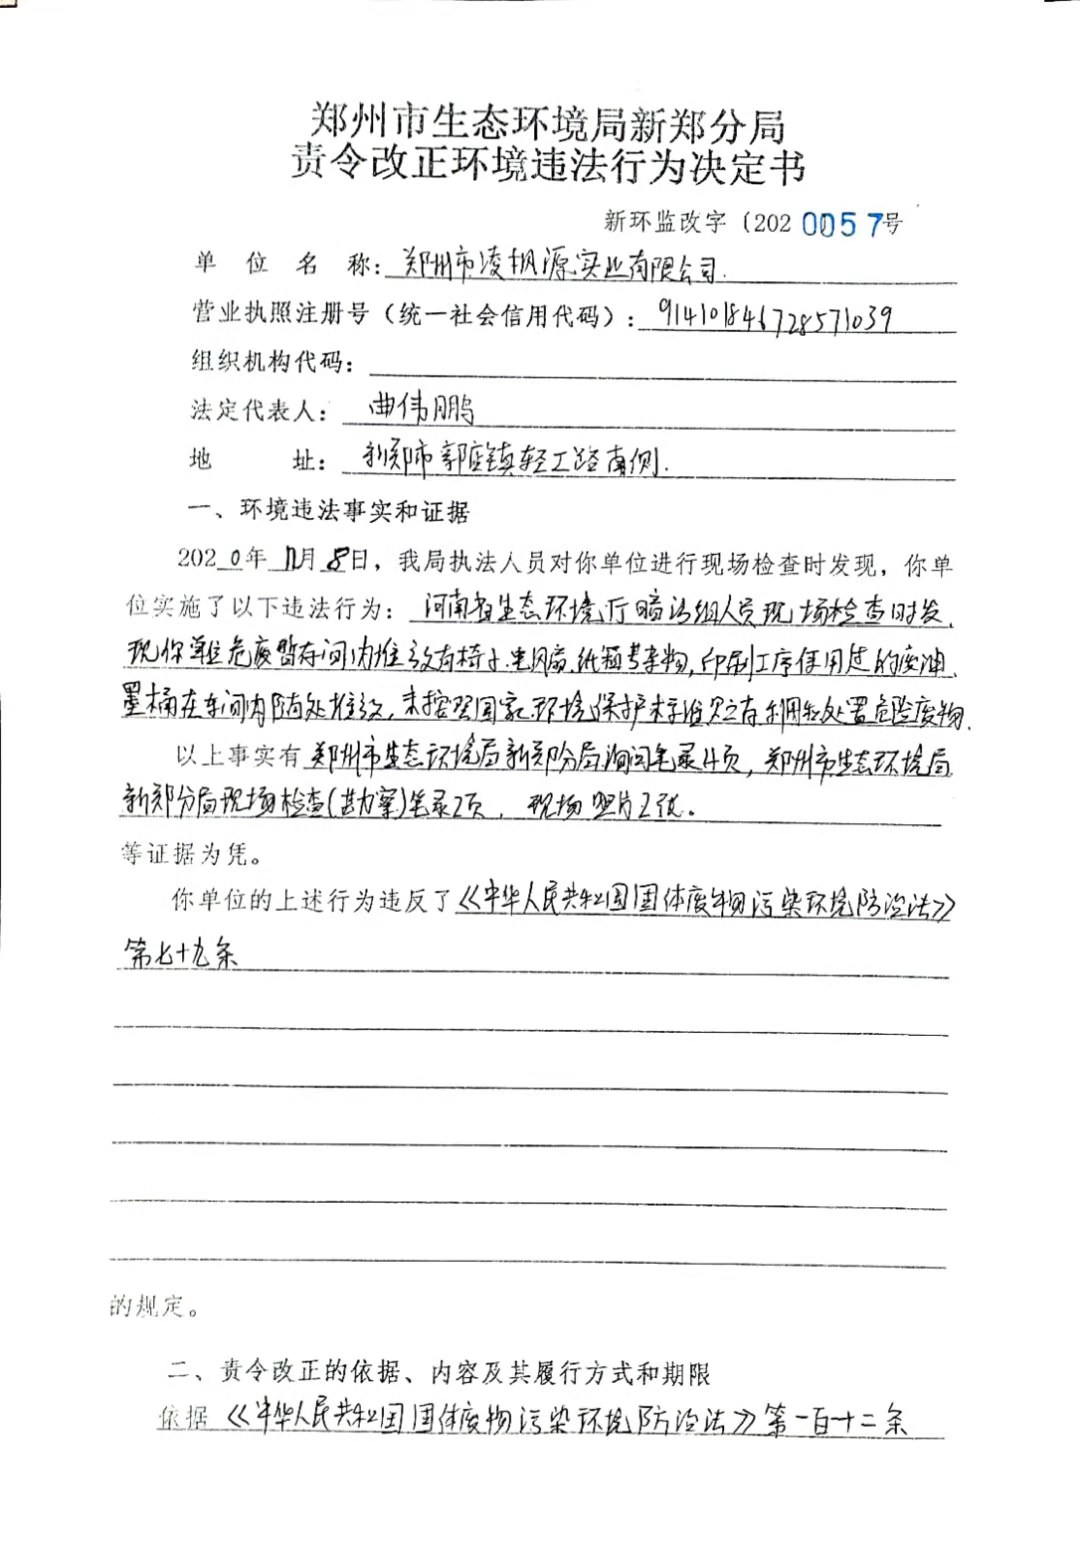 郑州市生态环境局新郑分局
责令改正环境违法行为决定书
新环监改字（202 0057号
单位名称：郑州市凌枫源实业有限公司.
营业执照注册号（统一社会信用代码）：914101846728571039
组织机构代码：
法定代表人：曲伟鹏
地址：新郑市郭店镇轻工路南侧.
一、环境违法事实和证据
2020年11月8日，我局执法人员对你单位进行现场检查时发现，你单
位实施了以下违法行为：河南省生态环境厅暗访组人员现场检查时发
现你单位危废暂存间内堆放有椅子.电风扇.纸箱等杂物,印刷工序使用过的废油
墨桶在车间内随处堆放,未按照国家环境保护标准贮存利用和处置危险废物.
以上事实有郑州市生态环境局新郑分局询问笔录4页,郑州市生态环境局
新郑分局现场检查(勘察)笔录2页，现场照片2张。
等证据为凭。
你单位的上述行为违反了《中华人民共和国固体废物污染环境防治法》
第七十九条
的规定。
二、责令改正的依据、内容及其履行方式和期限
依据《中华人民共和国固体废物污染环境防治法》第一百一十二条